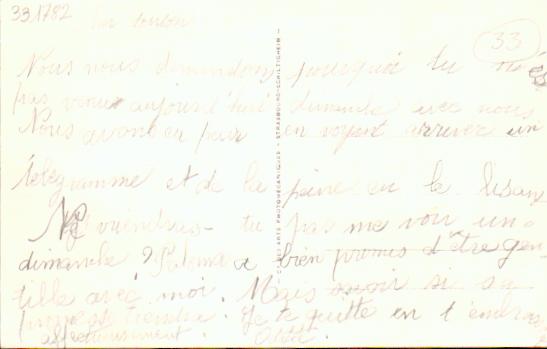 331782
33
Nous nous demandons pourquoi tu n'es
pas venue aujourd'hui dimanche avec nous
Nous avons eu peur en voyant arriver un
télégramme et de la peine en le lisant
Ne viendras-tu pas me voir un
dimanche ? Paloma a bien promis d'être gen-
tille avec moi. Mais savoir si sa
promesse tiendra. Je te quitte en t'embrass
affectueusement.
STRASBOURG-SCHILTIGHEIM